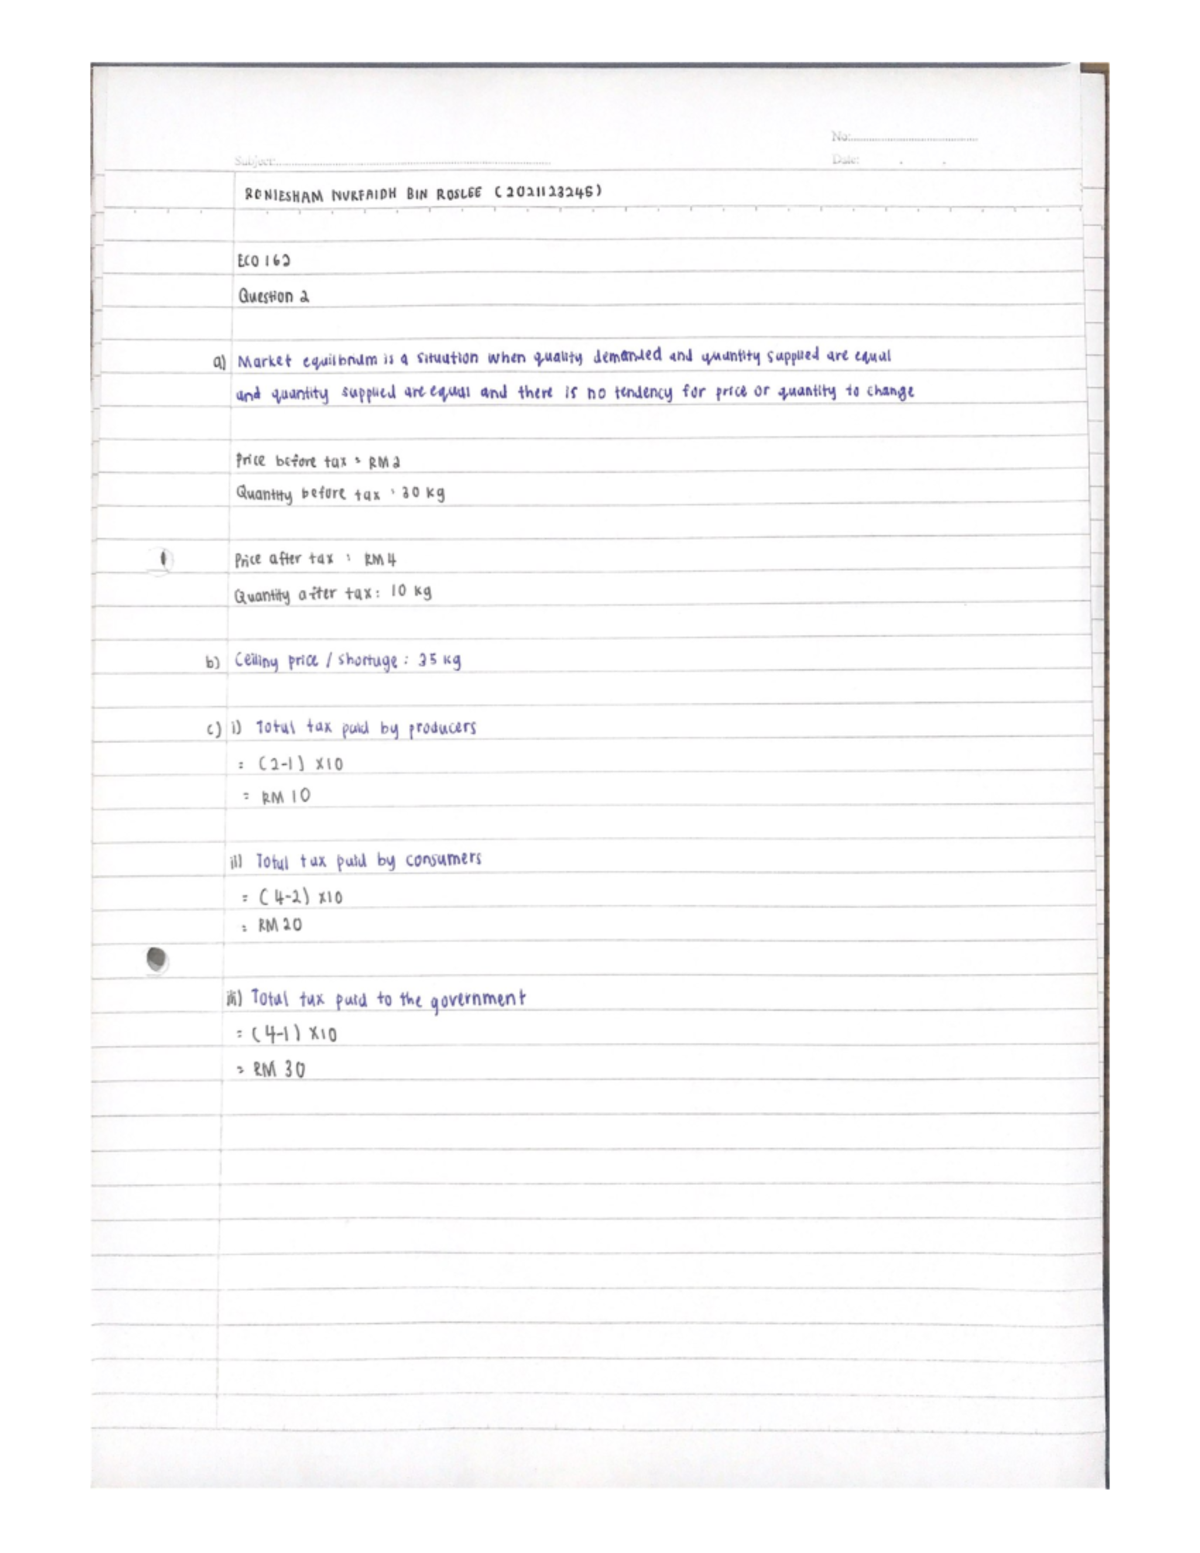 No:
Subject:
Date:
RONIESHAM NURFAIDH BIN ROSLEE (2021123245)
ECO 162
Question 2
a) Market equilibrium is a situation when quality demanded and quantity supplied are equal
and quantity supplied are equal and there is no tendency for price or quantity to change
Price before tax : RM2
Quantity before tax : 30 kg
Price after tax : RM4
Quantity after tax: 10 kg
b) Ceiling price / shortage : 35 kg
c) i) Total tax paid by producers
= (2-1) x10
= RM 10
ii) Total tax paid by consumers
= (4-2) x10
= RM 20
iii) Total tax paid to the government
= (4-1) x10
= RM 30